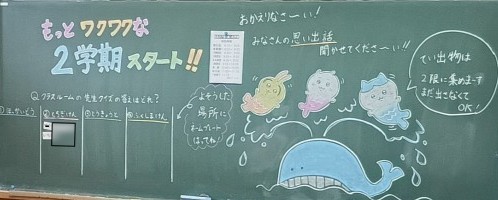 もっと ワクワクな
2学期 スタート!!
おかえりなさーい!
みなさんの 思い出話
聞かせてくださーい!!
てい出物は
2限に集めます
まだ出さなくて
OK!
Q クラスルームの 先生クイズの答えはどれ?
①ほっかいどう
②とちぎけん
③とうきょうと
④ふくしまけん
よそうした
場所に
ネームプレート
はってね!